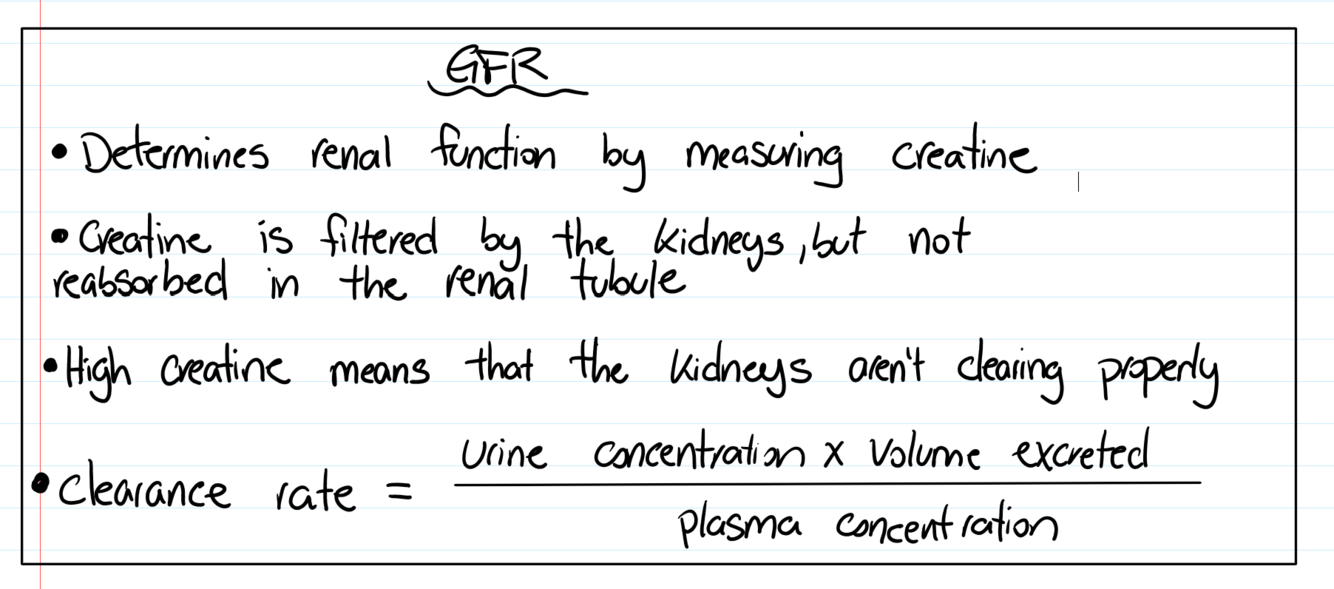 GFR
• Determines renal function by measuring creatine
• Creatine is filtered by the kidneys, but not
reabsorbed in the renal tubule
• High creatine means that the kidneys aren't clearing properly
• Clearance rate = urine concentration x volume excreted
plasma concentration